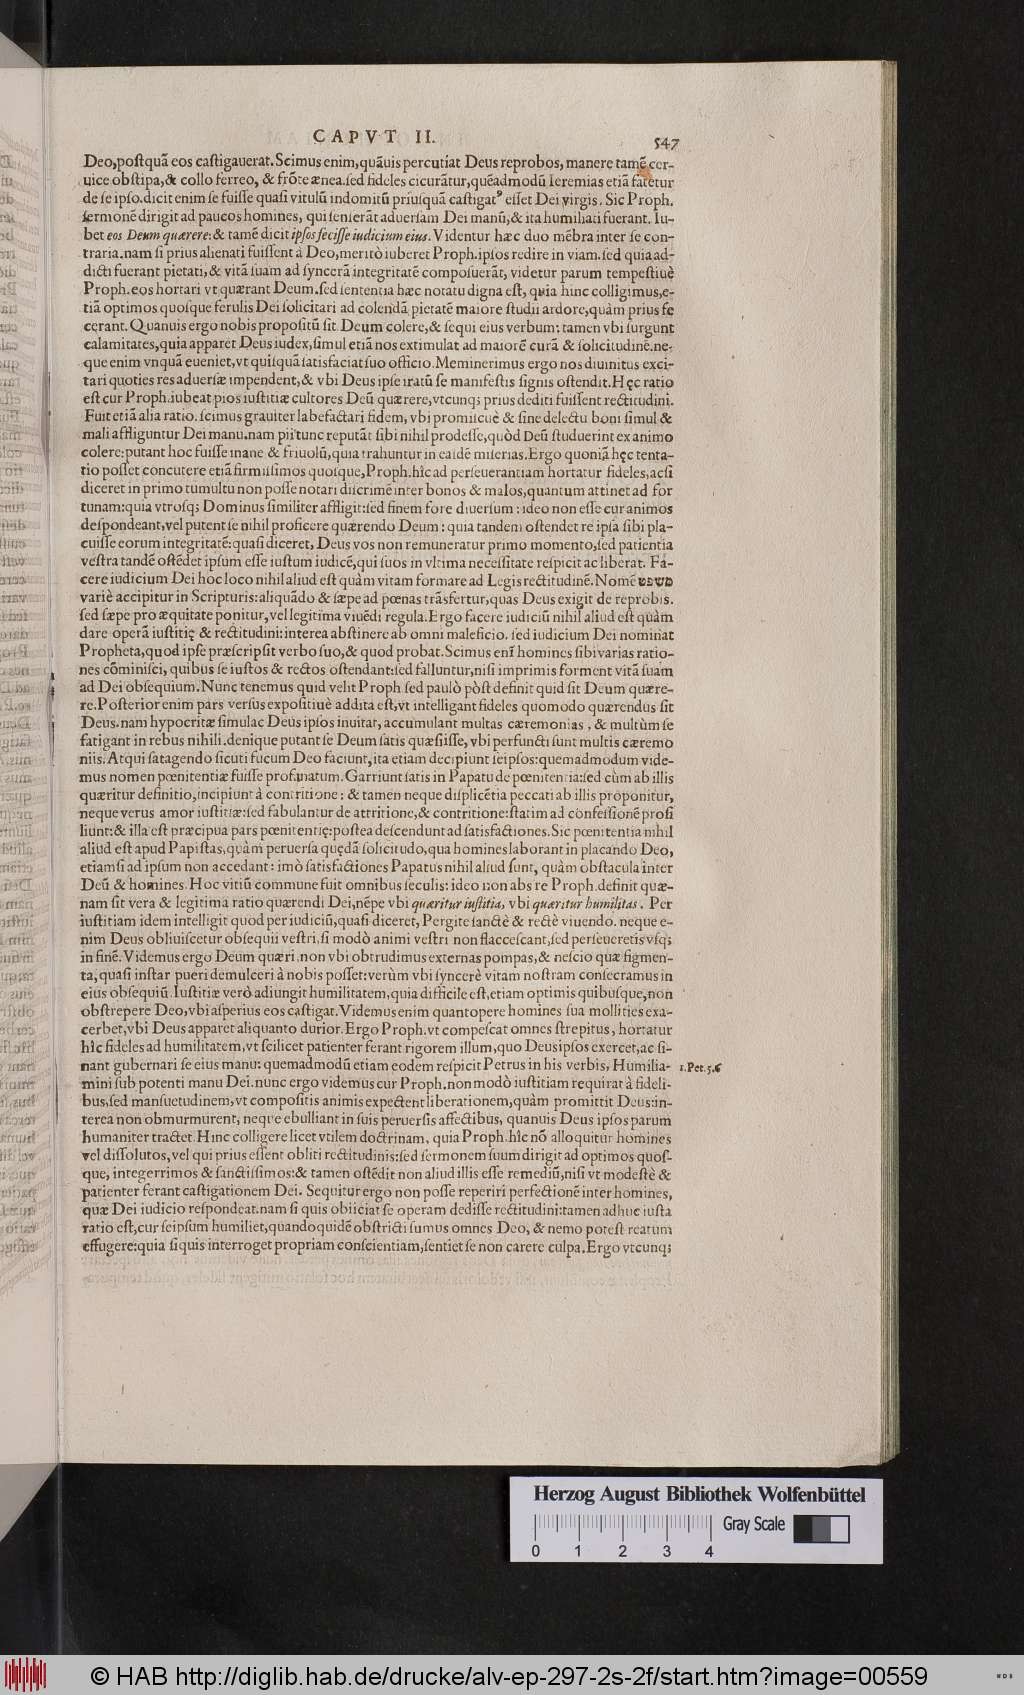 CAPVT II. 547
Deo,poſtquã eos caſtigauerat.Scimus enim,quãuis percutiat Deus reprobos, manere tamẽ cer-
uice obſtipa,& collo ferreo, & frõte ænea.ſed fideles cicurãtur,quẽadmodũ Ieremias etiã fatetur
de ſe ipſo.dicit enim ſe fuiſſe quaſi vitulũ indomitũ priuſquã caſtigatꝰ eſſet Dei virgis. Sic Proph.
ſermonẽ dirigit ad paucos homines, qui ſenſerãt aduerſam Dei manũ,& ita humiliati fuerant. Iu-
bet eos Deum quærere:& tamẽ dicit ipſos feciſſe iudicium eius.Videntur hæc duo mẽbra inter ſe con-
traria.nam ſi prius alienati fuiſſent à Deo,meritò iuberet Proph.ipſos redire in viam.ſed quia ad-
dicti fuerant pietati,& vitã ſuam ad ſyncerã integritatẽ compoſuerãt, videtur parum tempeſtiuè
Proph.eos hortari vt quærant Deum.ſed ſententia hæc notatu digna eſt, quia hinc colligimus,e-
tiã optimos quoſque ferulis Dei ſolicitari ad colendã pietatẽ maiore ſtudii ardore,quàm prius fe
cerant.Quanuis ergo nobis propoſitũ ſit Deum colere,& ſequi eius verbum: tamen vbi ſurgunt
calamitates,quia apparet Deus iudex,ſimul etiã nos extimulat ad maiorẽ curã & ſolicitudinẽ.ne-
que enim vnquã eueniet,vt quiſquã ſatisfaciat ſuo officio.Meminerimus ergo nos diuinitus exci-
tari quoties res aduerſæ impendent,& vbi Deus ipſe iratũ ſe manifeſtis ſignis oſtendit.Hęc ratio
eſt cur Proph.iubeat pios iuſtitiæ cultores Deũ quærere,vtcunq; prius dediti fuiſſent rectitudini.
Fuit etiã alia ratio. ſcimus grauiter labefactari fidem, vbi promiſcuè & ſine delectu boni ſimul &
mali affliguntur Dei manu.nam pii tunc reputãt ſibi nihil prodeſſe,quòd Deũ ſtuduerint ex animo
colere:putant hoc fuiſſe inane & friuolũ,quia trahuntur in eaſdẽ miſerias.Ergo quoniã hęc tenta-
tio poſſet concutere etiã firmiſſimos quoſque,Proph.hîc ad perſeuerantiam hortatur fideles,acſi
diceret in primo tumultu non poſſe notari diſcrimẽ inter bonos & malos,quantum attinet ad for
tunam:quia vtroſq; Dominus ſimiliter affligit:ſed finem fore diuerſum : ideo non eſſe cur animos
deſpondeant,vel putent ſe nihil proficere quærendo Deum : quia tandem oſtendet re ipſa ſibi pla-
cuiſſe eorum integritatẽ:quaſi diceret, Deus vos non remuneratur primo momento,ſed patientia
veſtra tandẽ oſtẽdet ipſum eſſe iuſtum iudicẽ,qui ſuos in vltima neceſſitate reſpicit ac liberat. Fa-
cere iudicium Dei hoc loco nihil aliud eſt quàm vitam formare ad Legis rectitudinẽ.Nomẽ משפט
variè accipitur in Scripturis:aliquãdo & ſæpe ad pœnas trãsfertur,quas Deus exigit de reprobis.
ſed ſæpe pro æquitate ponitur,vel legitima viuẽdi regula.Ergo facere iudiciũ nihil aliud eſt quàm
dare operã iuſtitię & rectitudini:interea abſtinere ab omni maleficio. ſed iudicium Dei nominat
Propheta,quod ipſe præſcripſit verbo ſuo,& quod probat.Scimus enĩ homines ſibi varias ratio-
nes cõminiſci, quibus ſe iuſtos & rectos oſtendant:ſed falluntur,niſi imprimis forment vitã ſuam
ad Dei obſequium.Nunc tenemus quid velit Proph ſed paulò pòſt definit quid ſit Deum quære-
re.Poſterior enim pars verſus expoſitiuè addita eſt,vt intelligant fideles quomodo quærendus ſit
Deus.nam hypocritæ ſimulac Deus ipſos inuitat,accumulant multas cæremonias , & multùm ſe
fatigant in rebus nihili.denique putant ſe Deum ſatis quæſiiſſe, vbi perfuncti ſunt multis cæremo
niis.Atqui ſatagendo ſicuti fucum Deo faciunt,ita etiam decipiunt ſeipſos:quemadmodum vide-
mus nomen pœnitentiæ fuiſſe profanatum.Garriunt ſatis in Papatu de pœnitentia:ſed cùm ab illis
quæritur definitio,incipiunt à contritione : & tamen neque diſplicẽtia peccati ab illis proponitur,
neque verus amor iuſtitiæ:ſed fabulantur de attritione,& contritione:ſtatim ad confeſſionẽ proſi
liunt:& illa eſt præcipua pars pœnitentię:poſtea deſcendunt ad ſatisfactiones.Sic pœnitentia nihil
aliud eſt apud Papiſtas,quàm peruerſa quędã ſolicitudo,qua homines laborant in placando Deo,
etiamſi ad ipſum non accedant : imò ſatisfactiones Papatus nihil aliud ſunt, quàm obſtacula inter
Deũ & homines.Hoc vitiũ commune fuit omnibus ſeculis: ideo non abs re Proph.definit quæ-
nam ſit vera & legitima ratio quærendi Dei,nẽpe vbi quæritur iuſtitia, vbi quæritur humilitas. Per
iuſtitiam idem intelligit quod per iudiciũ,quaſi diceret, Pergite ſanctè & rectè viuendo. neque e-
nim Deus obliuiſcetur obſequii veſtri,ſi modò animi veſtri non flacceſcant,ſed perſeueretis vſq;
in finẽ.Videmus ergo Deum quæri.non vbi obtrudimus externas pompas,& neſcio quæ figmen-
ta, quaſi inſtar pueri demulceri à nobis poſſet:verùm vbi ſyncerè vitam noſtram conſecramus in
eius obſequiũ.Iuſtitiæ verò adiungit humilitatem,quia difficile eſt,etiam optimis quibuſque,non
obſtrepere Deo,vbi aſperius eos caſtigat.Videmus enim quantopere homines ſua mollities exa-
cerbet,vbi Deus apparet aliquanto durior.Ergo Proph.vt compeſcat omnes ſtrepitus, hortatur
hîc fideles ad humilitatem,vt ſcilicet patienter ferant rigorem illum,quo Deus ipſos exercet,ac ſi-
nant gubernari ſe eius manu: quemadmodũ etiam eodem reſpicit Petrus in his verbis, Humilia- 1.Pet.5.6
mini ſub potenti manu Dei.nunc ergo videmus cur Proph.non modò iuſtitiam requirat à fideli-
bus,ſed manſuetudinem,vt compoſitis animis expectent liberationem,quàm promittit Deus:in-
terea non obmurmurent, neque ebulliant in ſuis peruerſis affectibus, quanuis Deus ipſos parum
humaniter tractet.Hinc colligere licet vtilem doctrinam, quia Proph.hîc nõ alloquitur homines
vel diſſolutos,vel qui prius eſſent obliti rectitudinis:ſed ſermonem ſuum dirigit ad optimos quoſ-
que, integerrimos & ſanctiſſimos:& tamen oſtẽdit non aliud illis eſſe remediũ,niſi vt modeſtè &
patienter ferant caſtigationem Dei. Sequitur ergo non poſſe reperiri perfectionẽ inter homines,
quæ Dei iudicio reſpondeat.nam ſi quis obiiciat ſe operam dediſſe rectitudini:tamen adhuc iuſta
ratio eſt,cur ſeipſum humiliet,quandoquidẽ obſtricti ſumus omnes Deo, & nemo poteſt reatum
effugere:quia ſiquis interroget propriam conſcientiam,ſentiet ſe non carere culpa.Ergo vtcunq;
Herzog August Bibliothek Wolfenbüttel
Gray Scale
0 1 2 3 4
© HAB http://diglib.hab.de/drucke/alv-ep-297-2s-2f/start.htm?image=00559